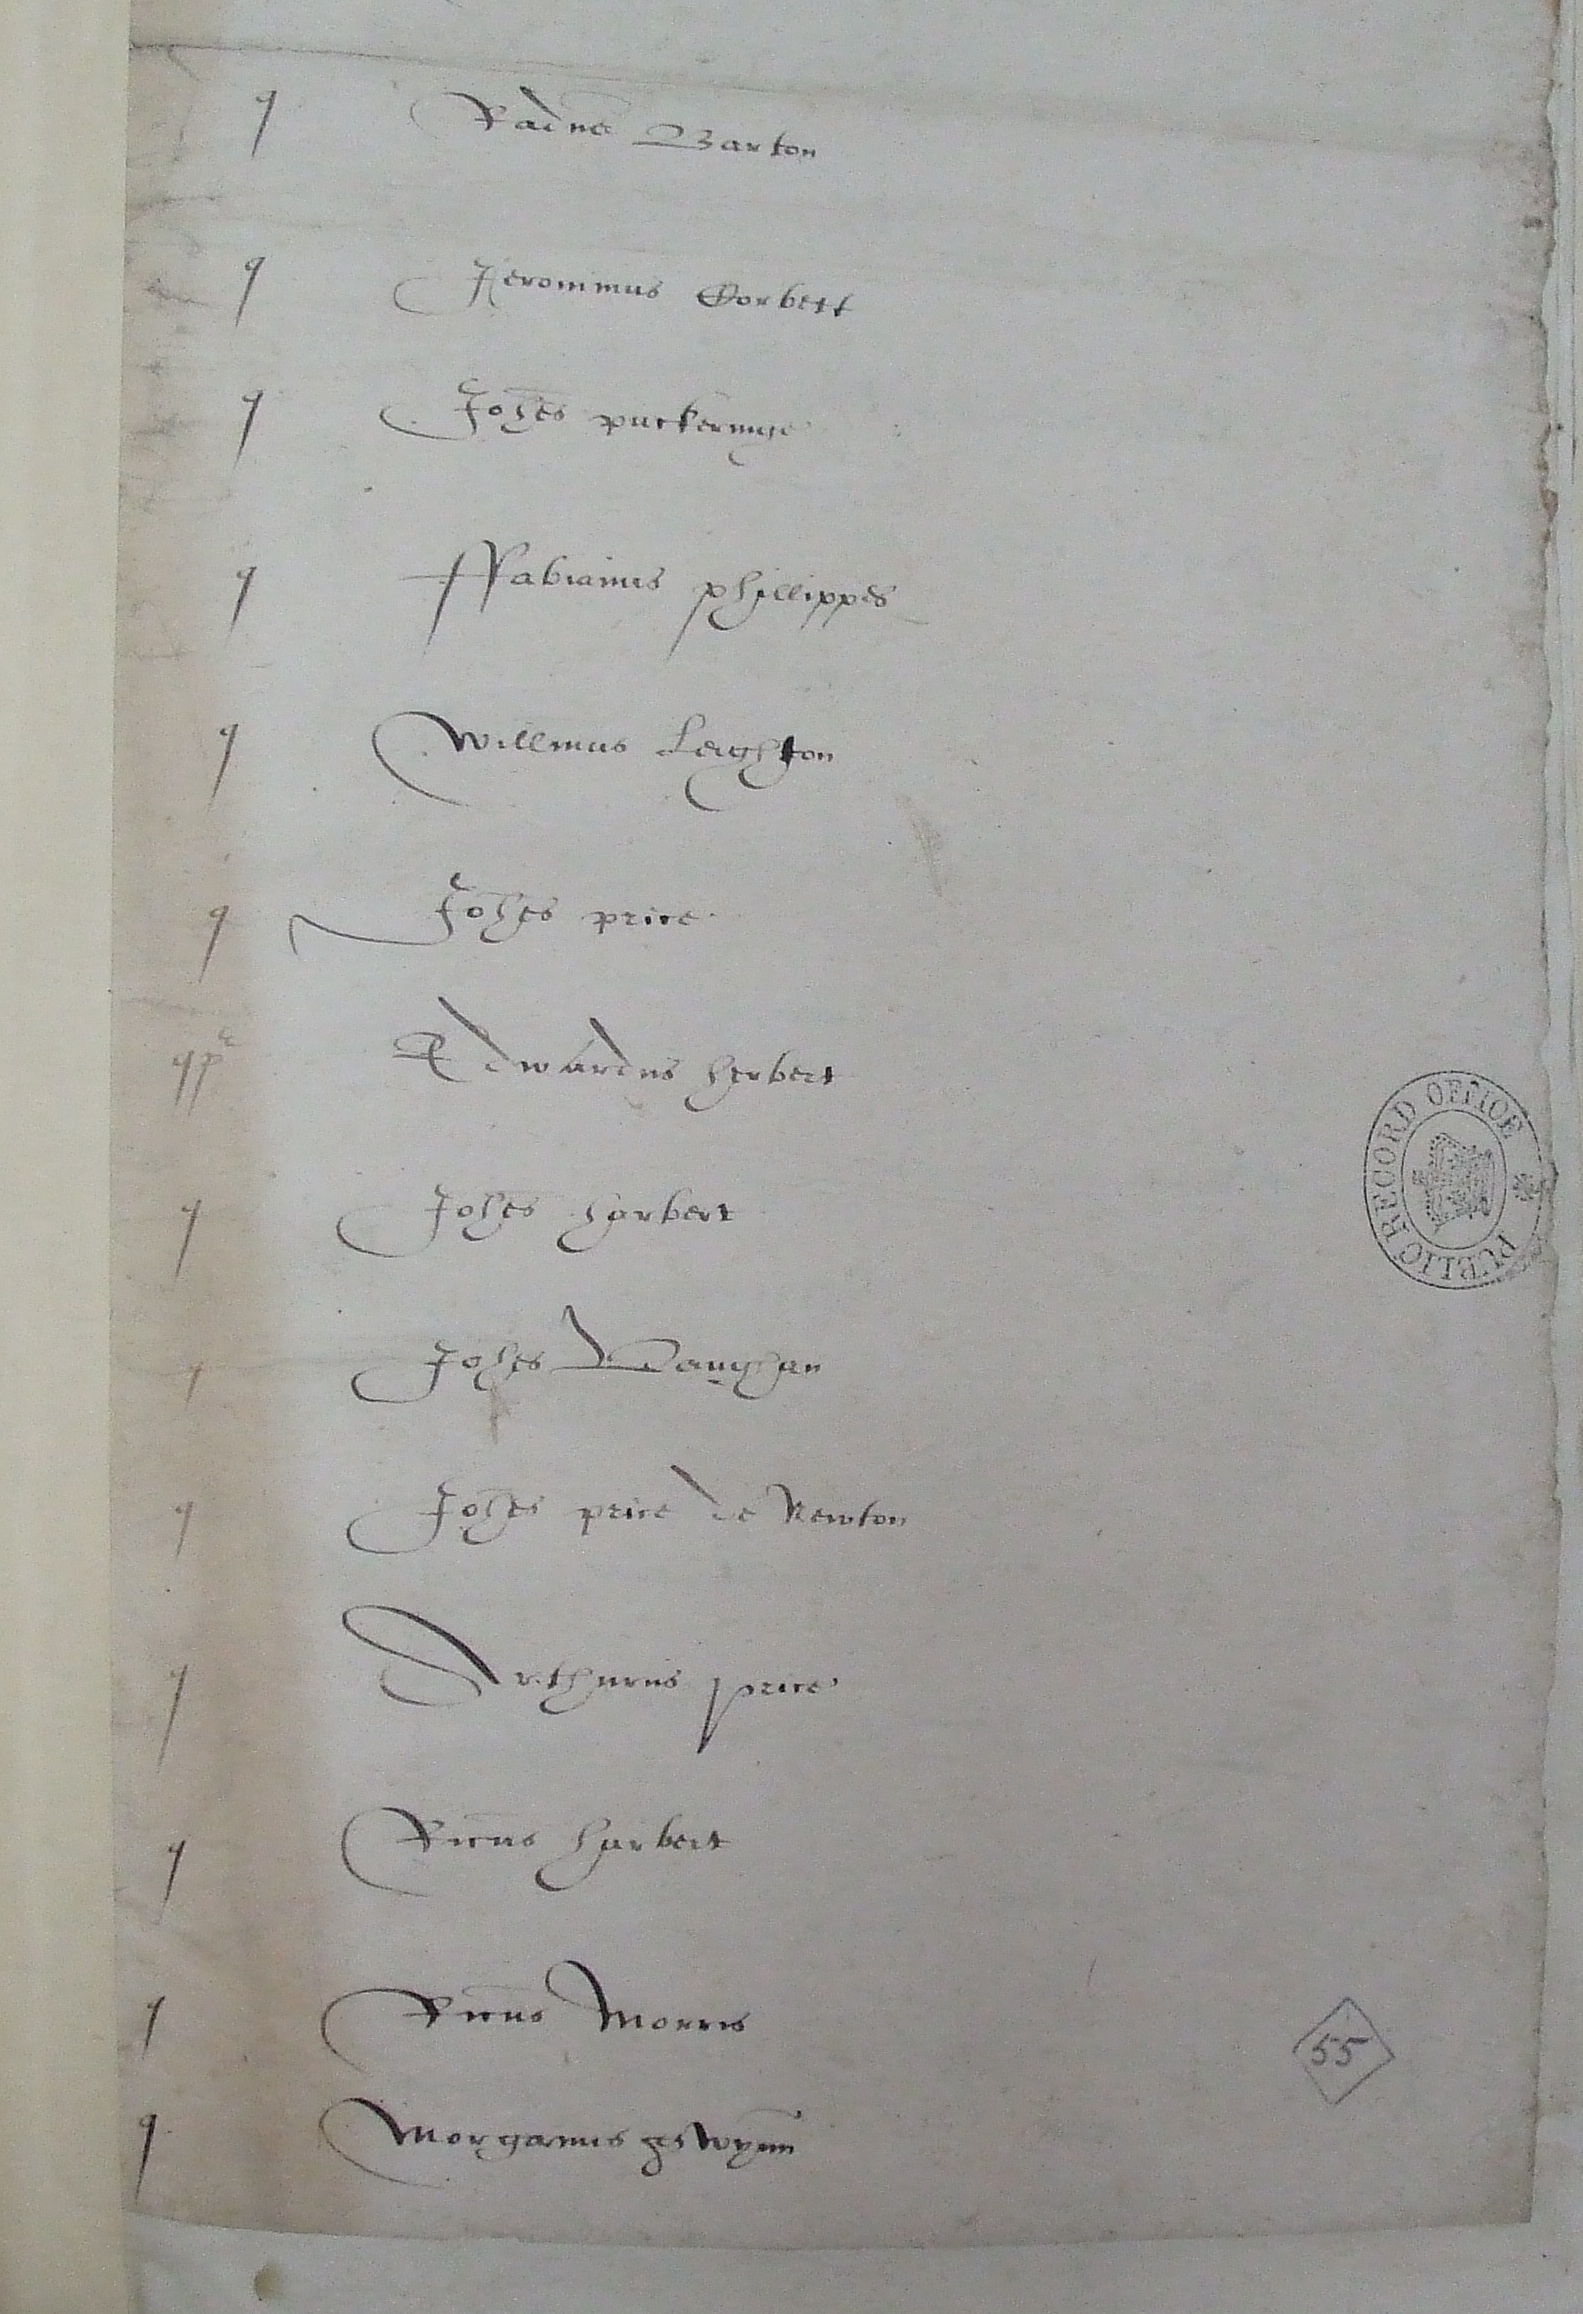 q Radus Barton
q Jeronimus Corbett
q Johes puckeringe
q ffabianus phillippes
q Willmus Leighton
q Johes price
q Edwardus herbert
q Johes harbert
q Johes Vaughan
q Johes price de Newton
q Arthurus price
q Ricus harbert
q Ricus Morris
q Morganus Wynn
PUBLIC RECORD OFFICE
55